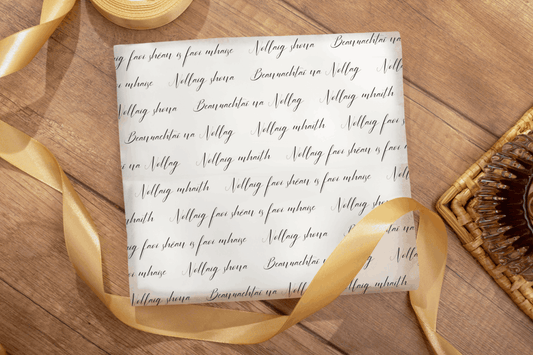 faoi shéan is faoi mhaise Nollaig shona Beannachtaí na
Nollaig shona Beannachtaí na Nollag
Nollaig shona Beannachtaí na Nollag Nollaig mhaith
Beannachtaí na Nollag Nollaig mhaith Nollaig faoi
Nollag Nollaig mhaith Nollaig faoi shéan is faoi
Nollaig mhaith Nollaig faoi shéan is faoi mhaise
Nollaig faoi shéan is faoi mhaise Nollaig shona
Nollaig faoi shéan is faoi mhaise Nollaig shona
mhaise Nollaig shona Beannachtaí na Nollag
Nollaig shona Beannachtaí na Nollag Nollaig mhaith